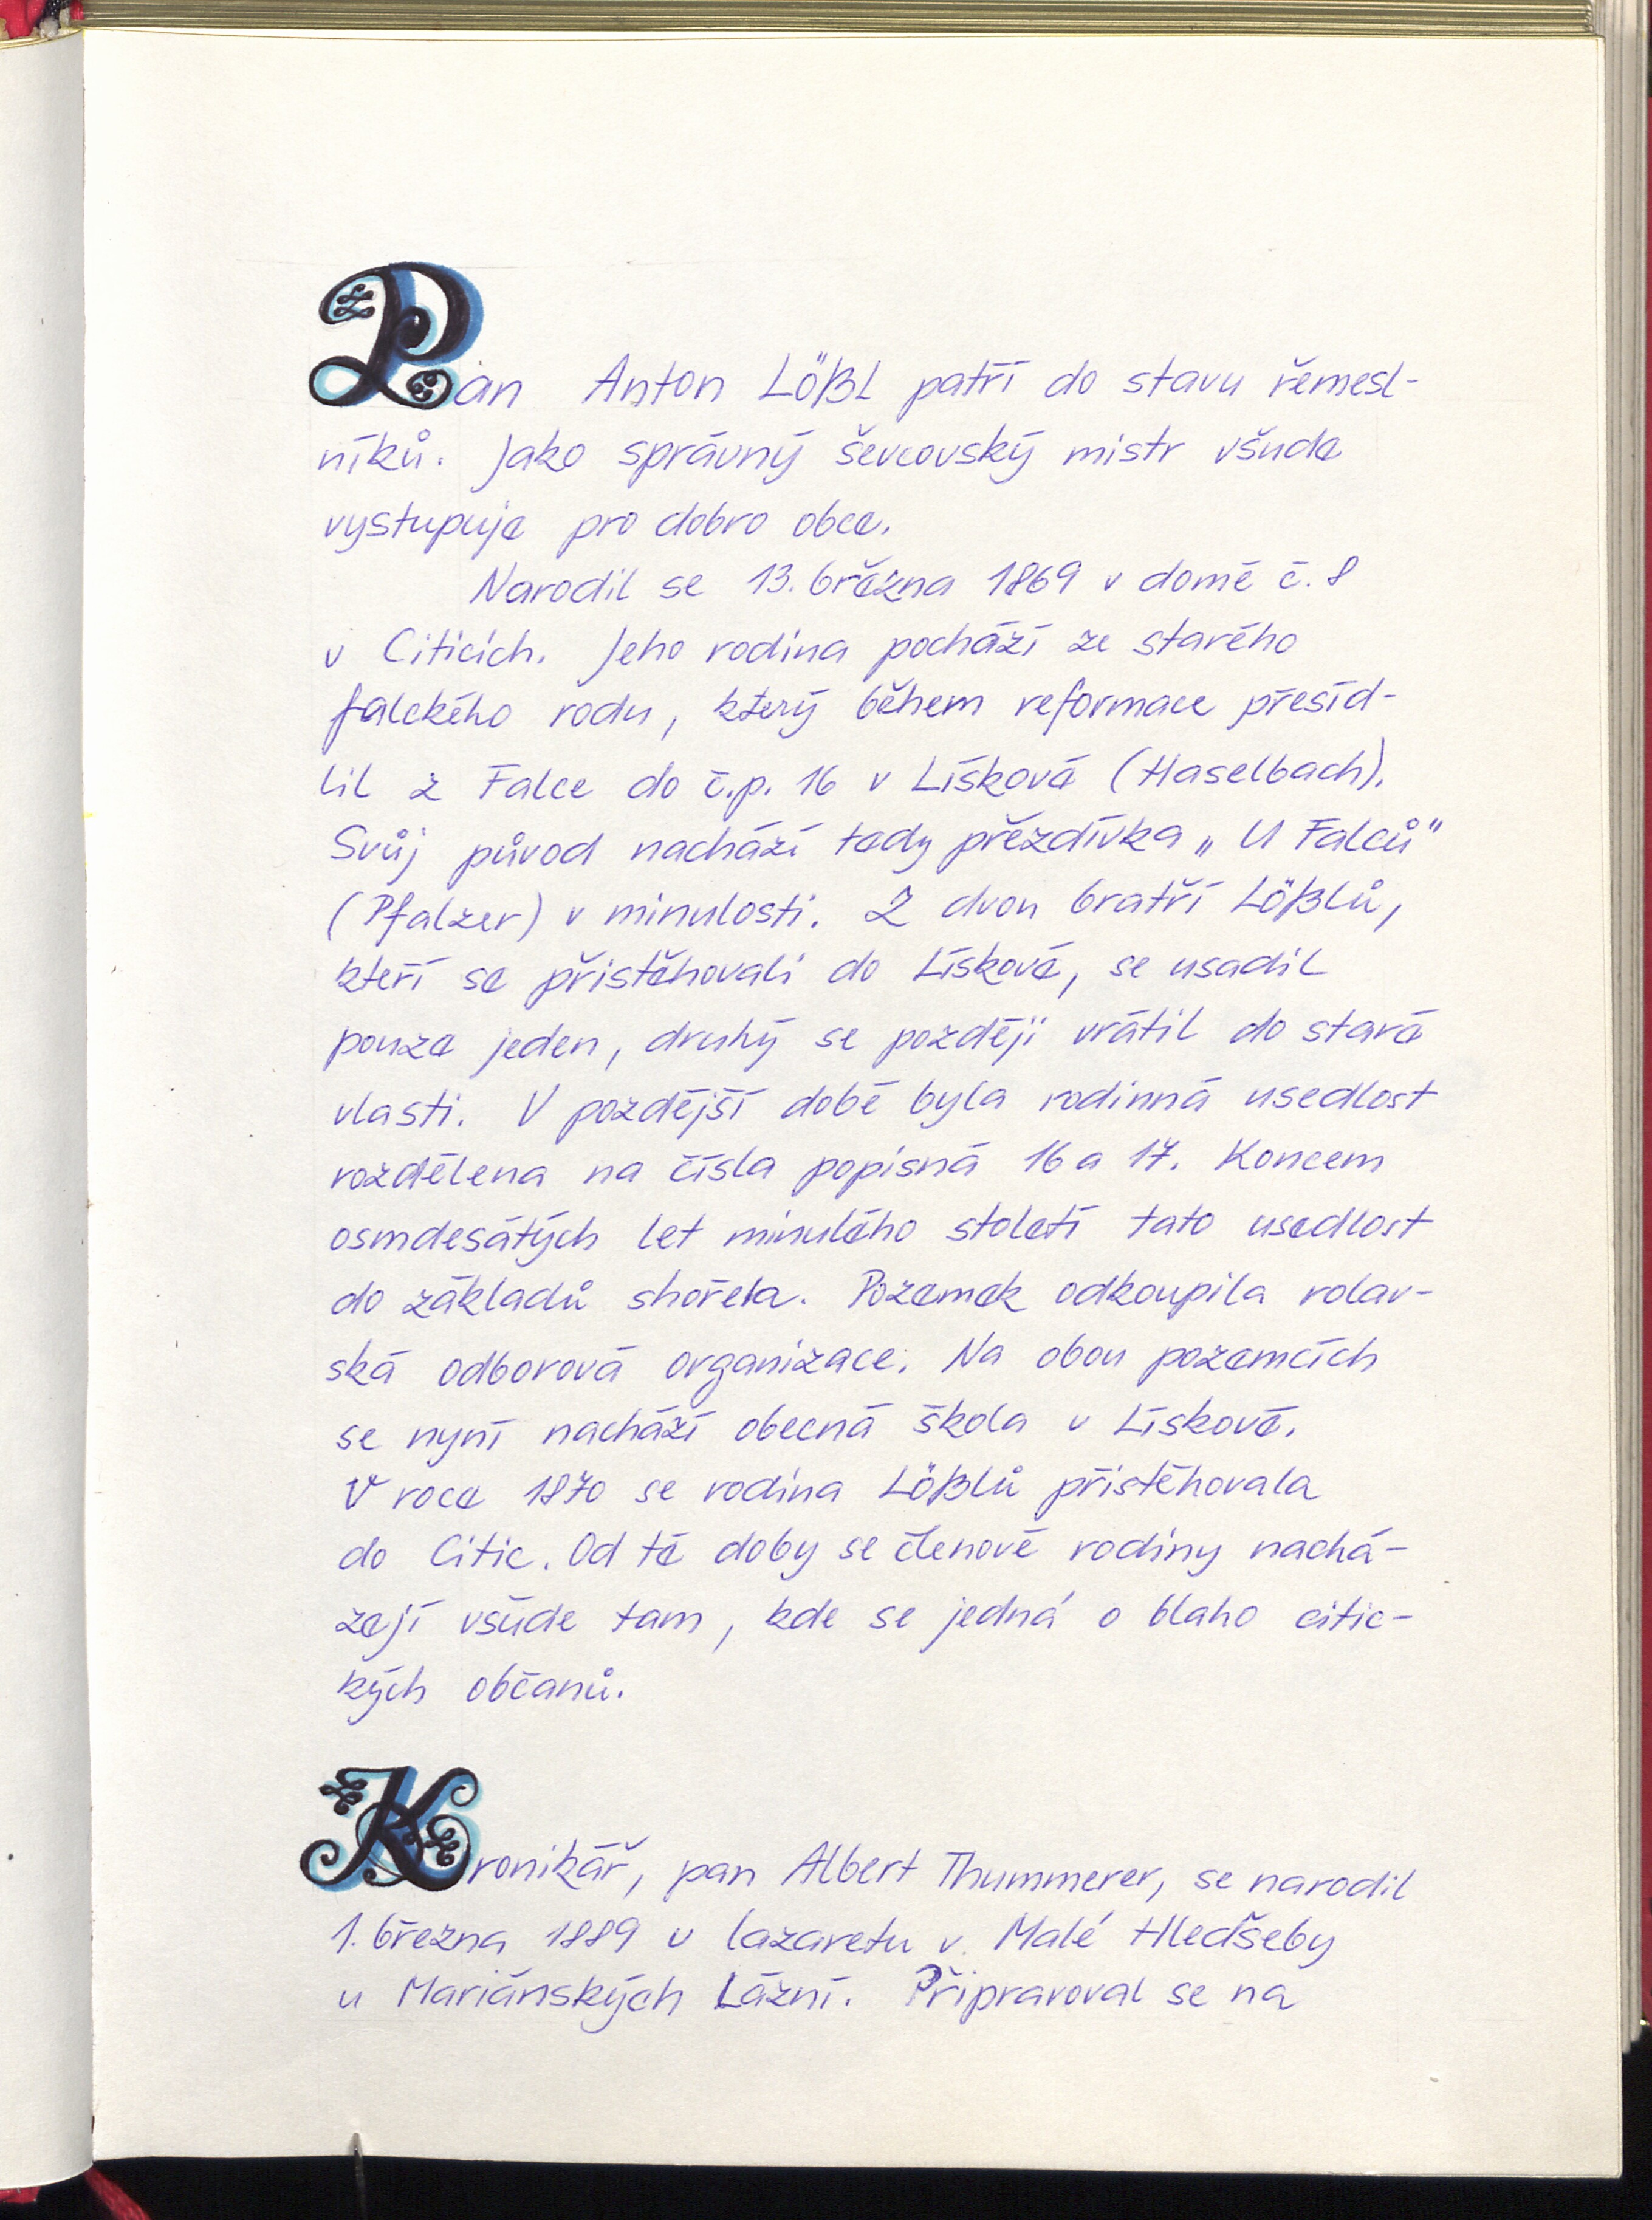 Pan Anton Lößl patří do stavu řemesl-
níků. Jako správný ševcovský mistr všude
vystupuje pro dobro obce.
Narodil se 13. března 1869 v domě č. 8
v Citicích. Jeho rodina pochází ze starého
falckého rodu, který během reformace přesíd-
lil z Falce do č.p. 16 v Lískové (Haselbach).
Svůj původ nachází tedy přezdívka „U Falců"
(Pfalzer) v minulosti. Z dvou bratří Lößlů,
kteří se přistěhovali do Lískové, se usadil
pouze jeden, druhý se později vrátil do staré
vlasti. V pozdější době byla rodinná usedlost
rozdělena na čísla popisná 16 a 17. Koncem
osmdesátých let minulého století tato usedlost
do základů shořela. Pozemek odkoupila rolav-
ská odborová organizace. Na obou pozemcích
se nyní nachází obecná škola v Lískové.
V roce 1870 se rodina Lößlů přistěhovala
do Citic. Od té doby se členové rodiny nachá-
zejí všude tam, kde se jedná o blaho citic-
kých občanů.
Kronikář, pan Albert Thummerer, se narodil
1. března 1889 v lazaretu v Malé Hleďseby
u Mariánských Lázní. Připravoval se na